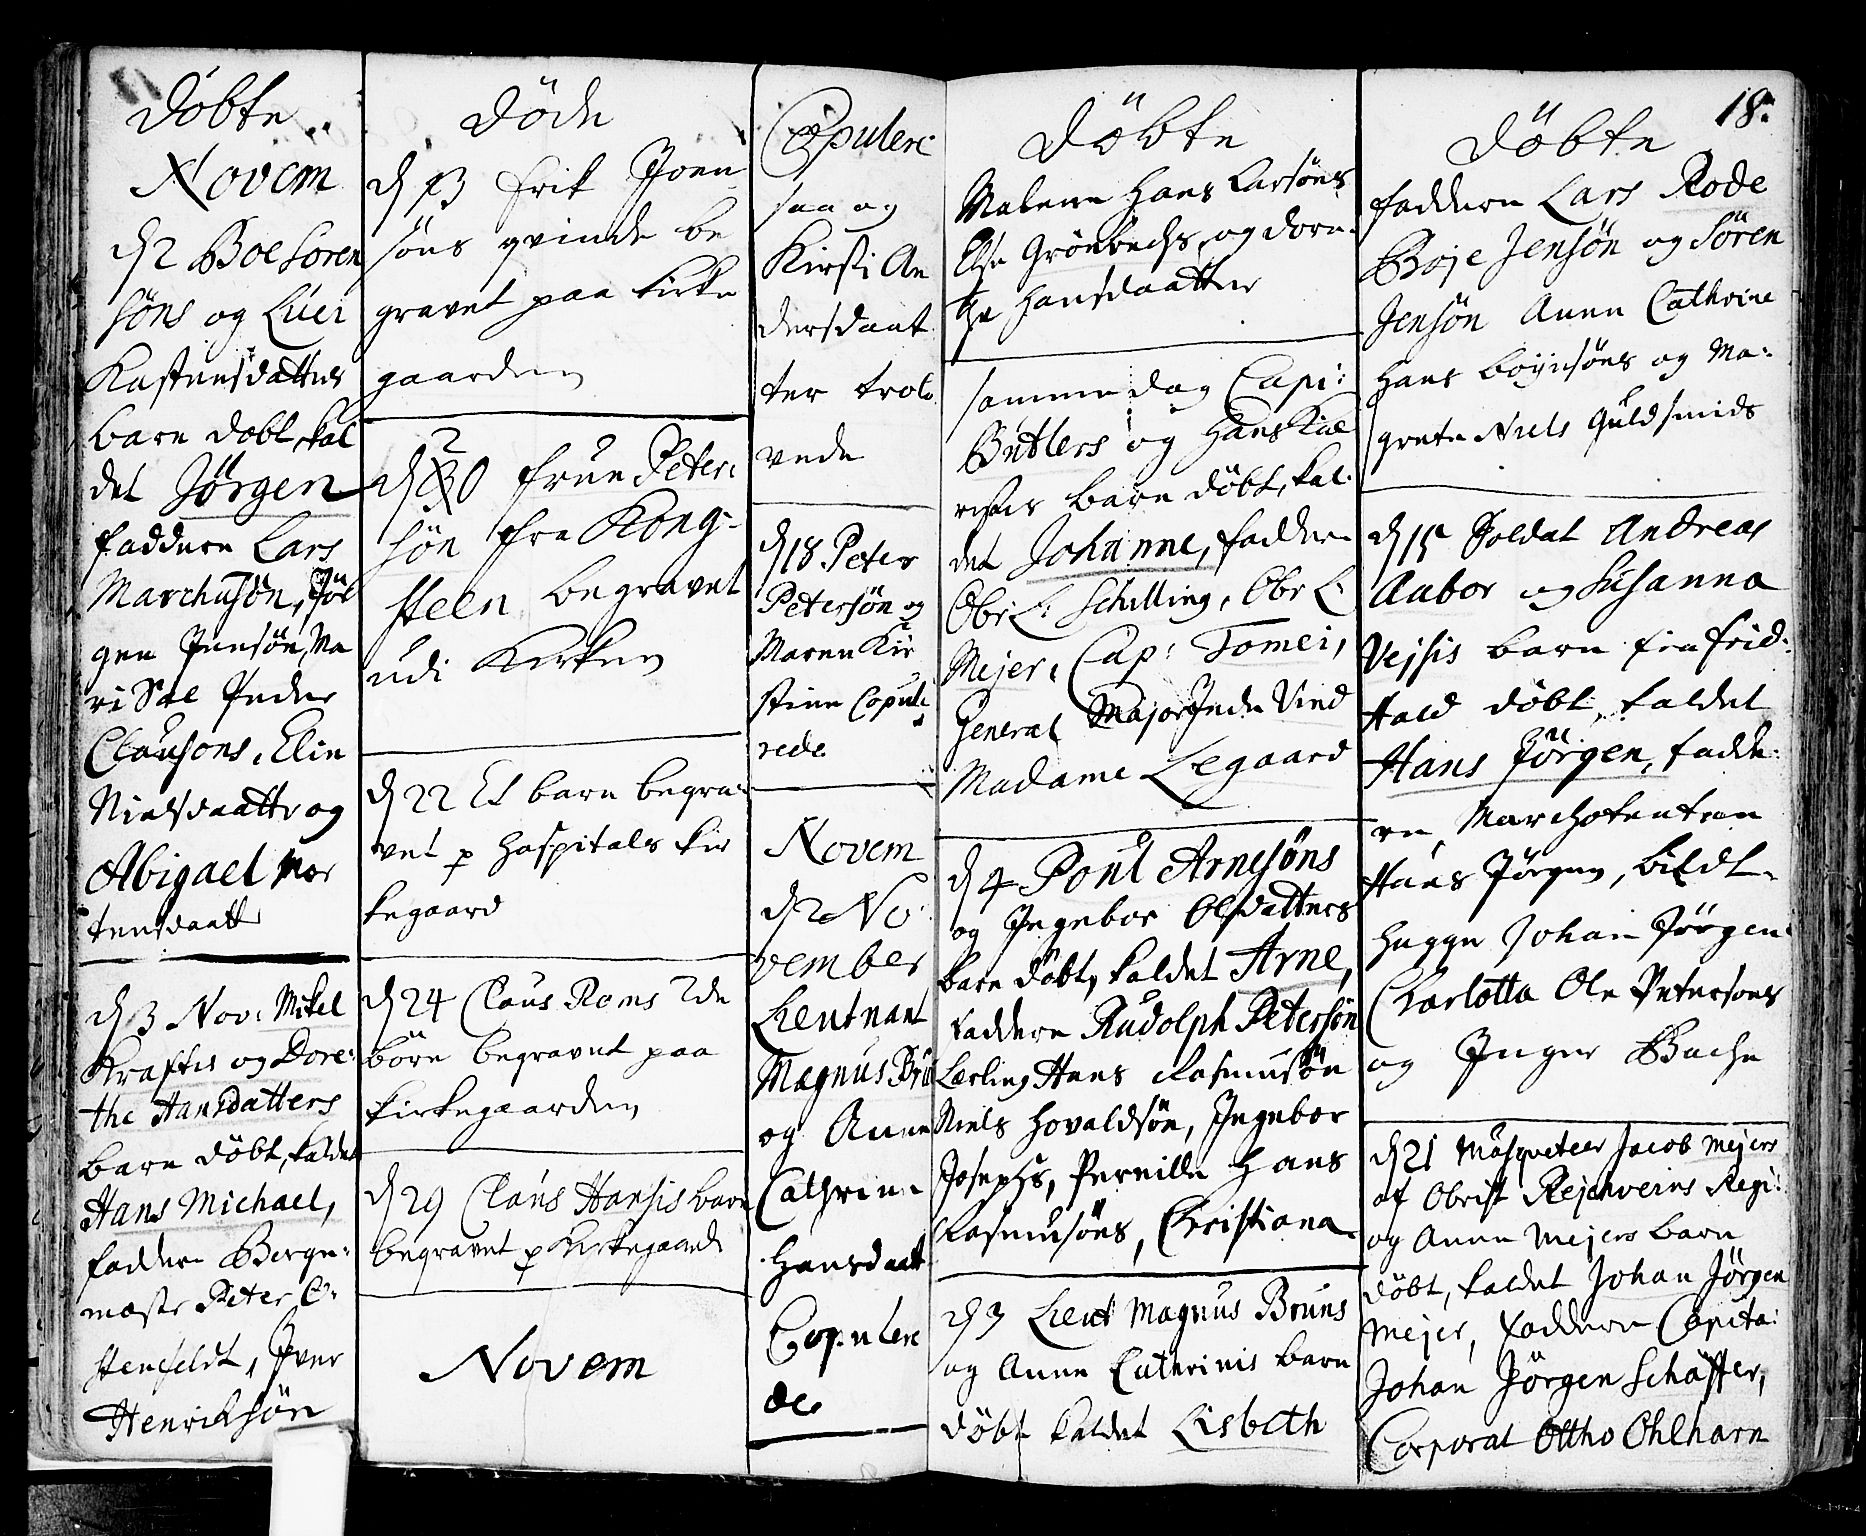 Döbte
Novem
d 2 Boe Soren
söns og Luci
Kastensdatters
barn dobt, kal
det Jörgen
faddere Lars
Marchusön, Jör
gen Jensön, Ma
ri Peder
Clausons, Elin
Nielsdaattr og
Abigael Mor
tensdaatt
d 3 Nov: Mikel
Krafts og Dore:
the Hansdatters
barn döbt, kaldet
Hans Michael,
faddere Borge:
mæstr Peter O:
stenfeldt, Iver
Henricksön
Döde
d 13 Erik Joen
söns qvinde be
gravet paa kirke
gaarden
2
d 20 frue Peter:
sön fra Kong-
steen begravet
udi Kirken
d 22 Et barn begra-
vet p hospitals kir
kegaard
d 24 Claus Roms 2de
börn begravet paa
kirkegaarden
d 29 Claus Hansis barn
begravet p Kirkegaarde
Novem
Copulere
saa og
Kirsti An
dersdaat
ter trolo
vede
d 18 Peter
Petersön og
Maren Kir
stine Copule
rede
Novem
d 2 No
vember
Lieutnant
Magnus Brü
og Anne
Cathrine
Hansdaatt
Copulere
de
Döbte
Malene Hans Larsöns
Else Grönbechs, og Doro-
the Hansdaatter
samme dag Capi:
Butlers og Hans Kiæ
restes barn döbt, kal:
det Johanne, faddere
Obr: L: Schilling, Obr L:
Mejer, Cap: Tomei,
General Major Inde Vind
Madame Legaard
d 4 Poul Arnesöns
og Ingebor Olsdatters
barn döbt, kaldet Arne,
faddere Rudolph Petersön
Lærling Hans Rasmusön
Niels Hovaldsön, Ingebor
Josephs, Pernille Hans
Rasmusöns, Christiana
d 3 Lieut Magnus Bruns
og Anne Cathrinis barn
döbt kaldet Lisbeth
18.
Döbte
faddere Lars Rode
Boje Jensön og Sören
Jensön Anne Cathrine
Hans Boyesöns og Ma:
grete Niels Guldsmids
d 15 Soldat Andreas
Aabor og Susanna
Vejsis barn fra Frid:
Hald döbt, kaldet
Hans Jörgen, fadde:
re, Marchetentren
Hans Jörgen, bildt-
hugger Johan Jörgen
Charlotta Ole Petersons
og Inger Bache
d 21 Musqveteer Jacob Mejers
af Obrist Rejchweins Regi:
og Anne Mejers barn
döbt, kaldet Johan Jörgen
Mejer, faddere Capita:
Johan Jörgen Schäffer,
Corporal Ottho Ohlharn